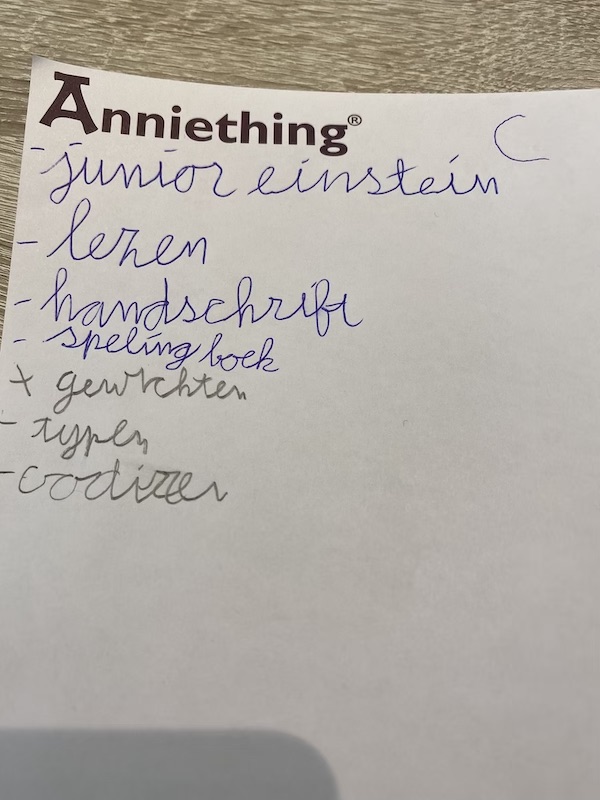 Anniething®
C
- junior einstein
- lezen
- handschrift
- speling boek
+ gewichten
- typen